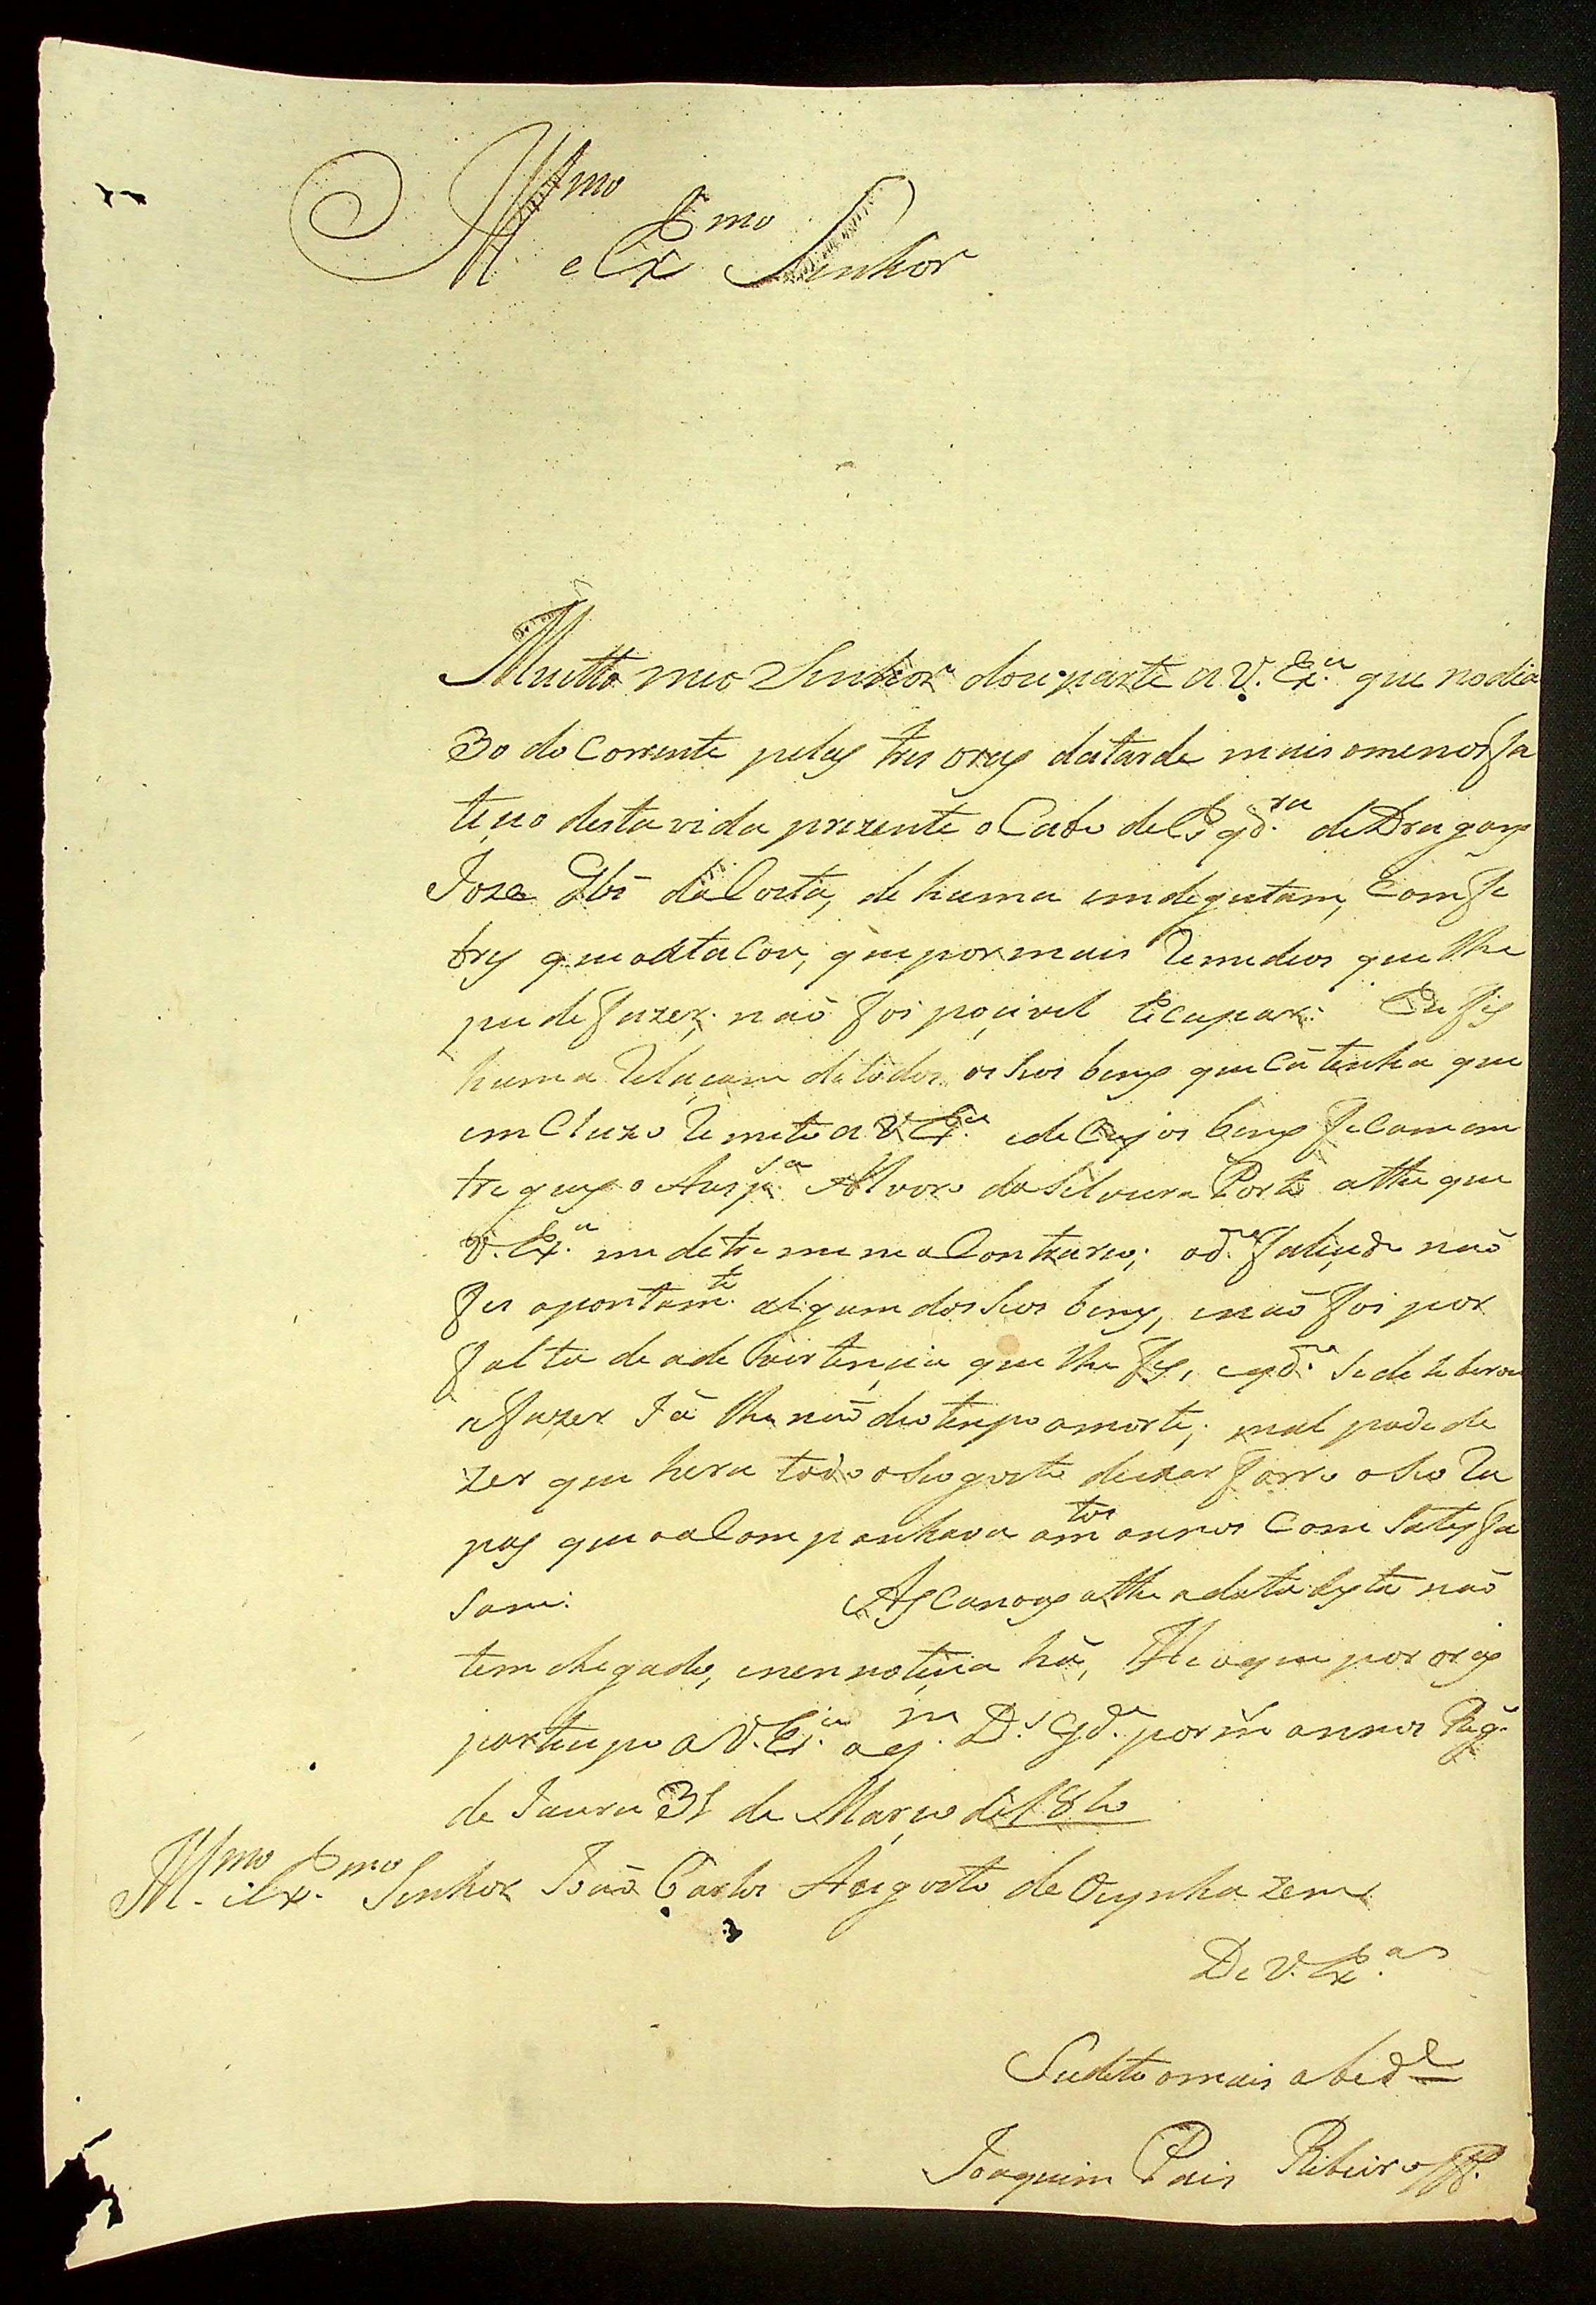 Illmo
e Exmo Senhor
Muitto meo Senhor dou parte a V. Exa que no dia
30 do Corrente pelas tres oras datarde mais omenos fa
leçeo destavida prezente o Cabo de Esqdra de Dragoens
Joze Glz da Costa, de huma emdegestam, Com fe
bres queoattaCou, que por mais Remedios que lhe
pude fazer, naõ foi poçivel Escapar. Eu fis
huma Relaçam detodos os seos bens que Cá tenha que
em Cluzo Remeto a V Exa edeCujos bens ficam em
tregues o Ansp.a Alvoro da Silveira Porto athe que
V. Exa me detremine o Contrario; od.o falicido naõ
fes apontamto algum dos seos bens, enaõ foi por
falta de adeVirtençia que lhe fis, eqdo se deleberou
afazer Já lhe naõ deo tempo amorte; mal pode de
zer que hera todo o seo gosto deixar forro o seo Ra
pas que oaCompanhava a mtos annos Com Satesfa
sam. As Canoas athe adata desta naõ
tem chegado, enen notiçia há, He oque por oras
partecipo a V. Exa aqm Ds Gde por ms annos Reg.o
de Jauru 31 de Março de 1810
Illmo e Exmo Senhor João Carlos Augosto de Oeynhazem
De V. Exa
Sudito omais obede
Joaquim Pais Ribeiro